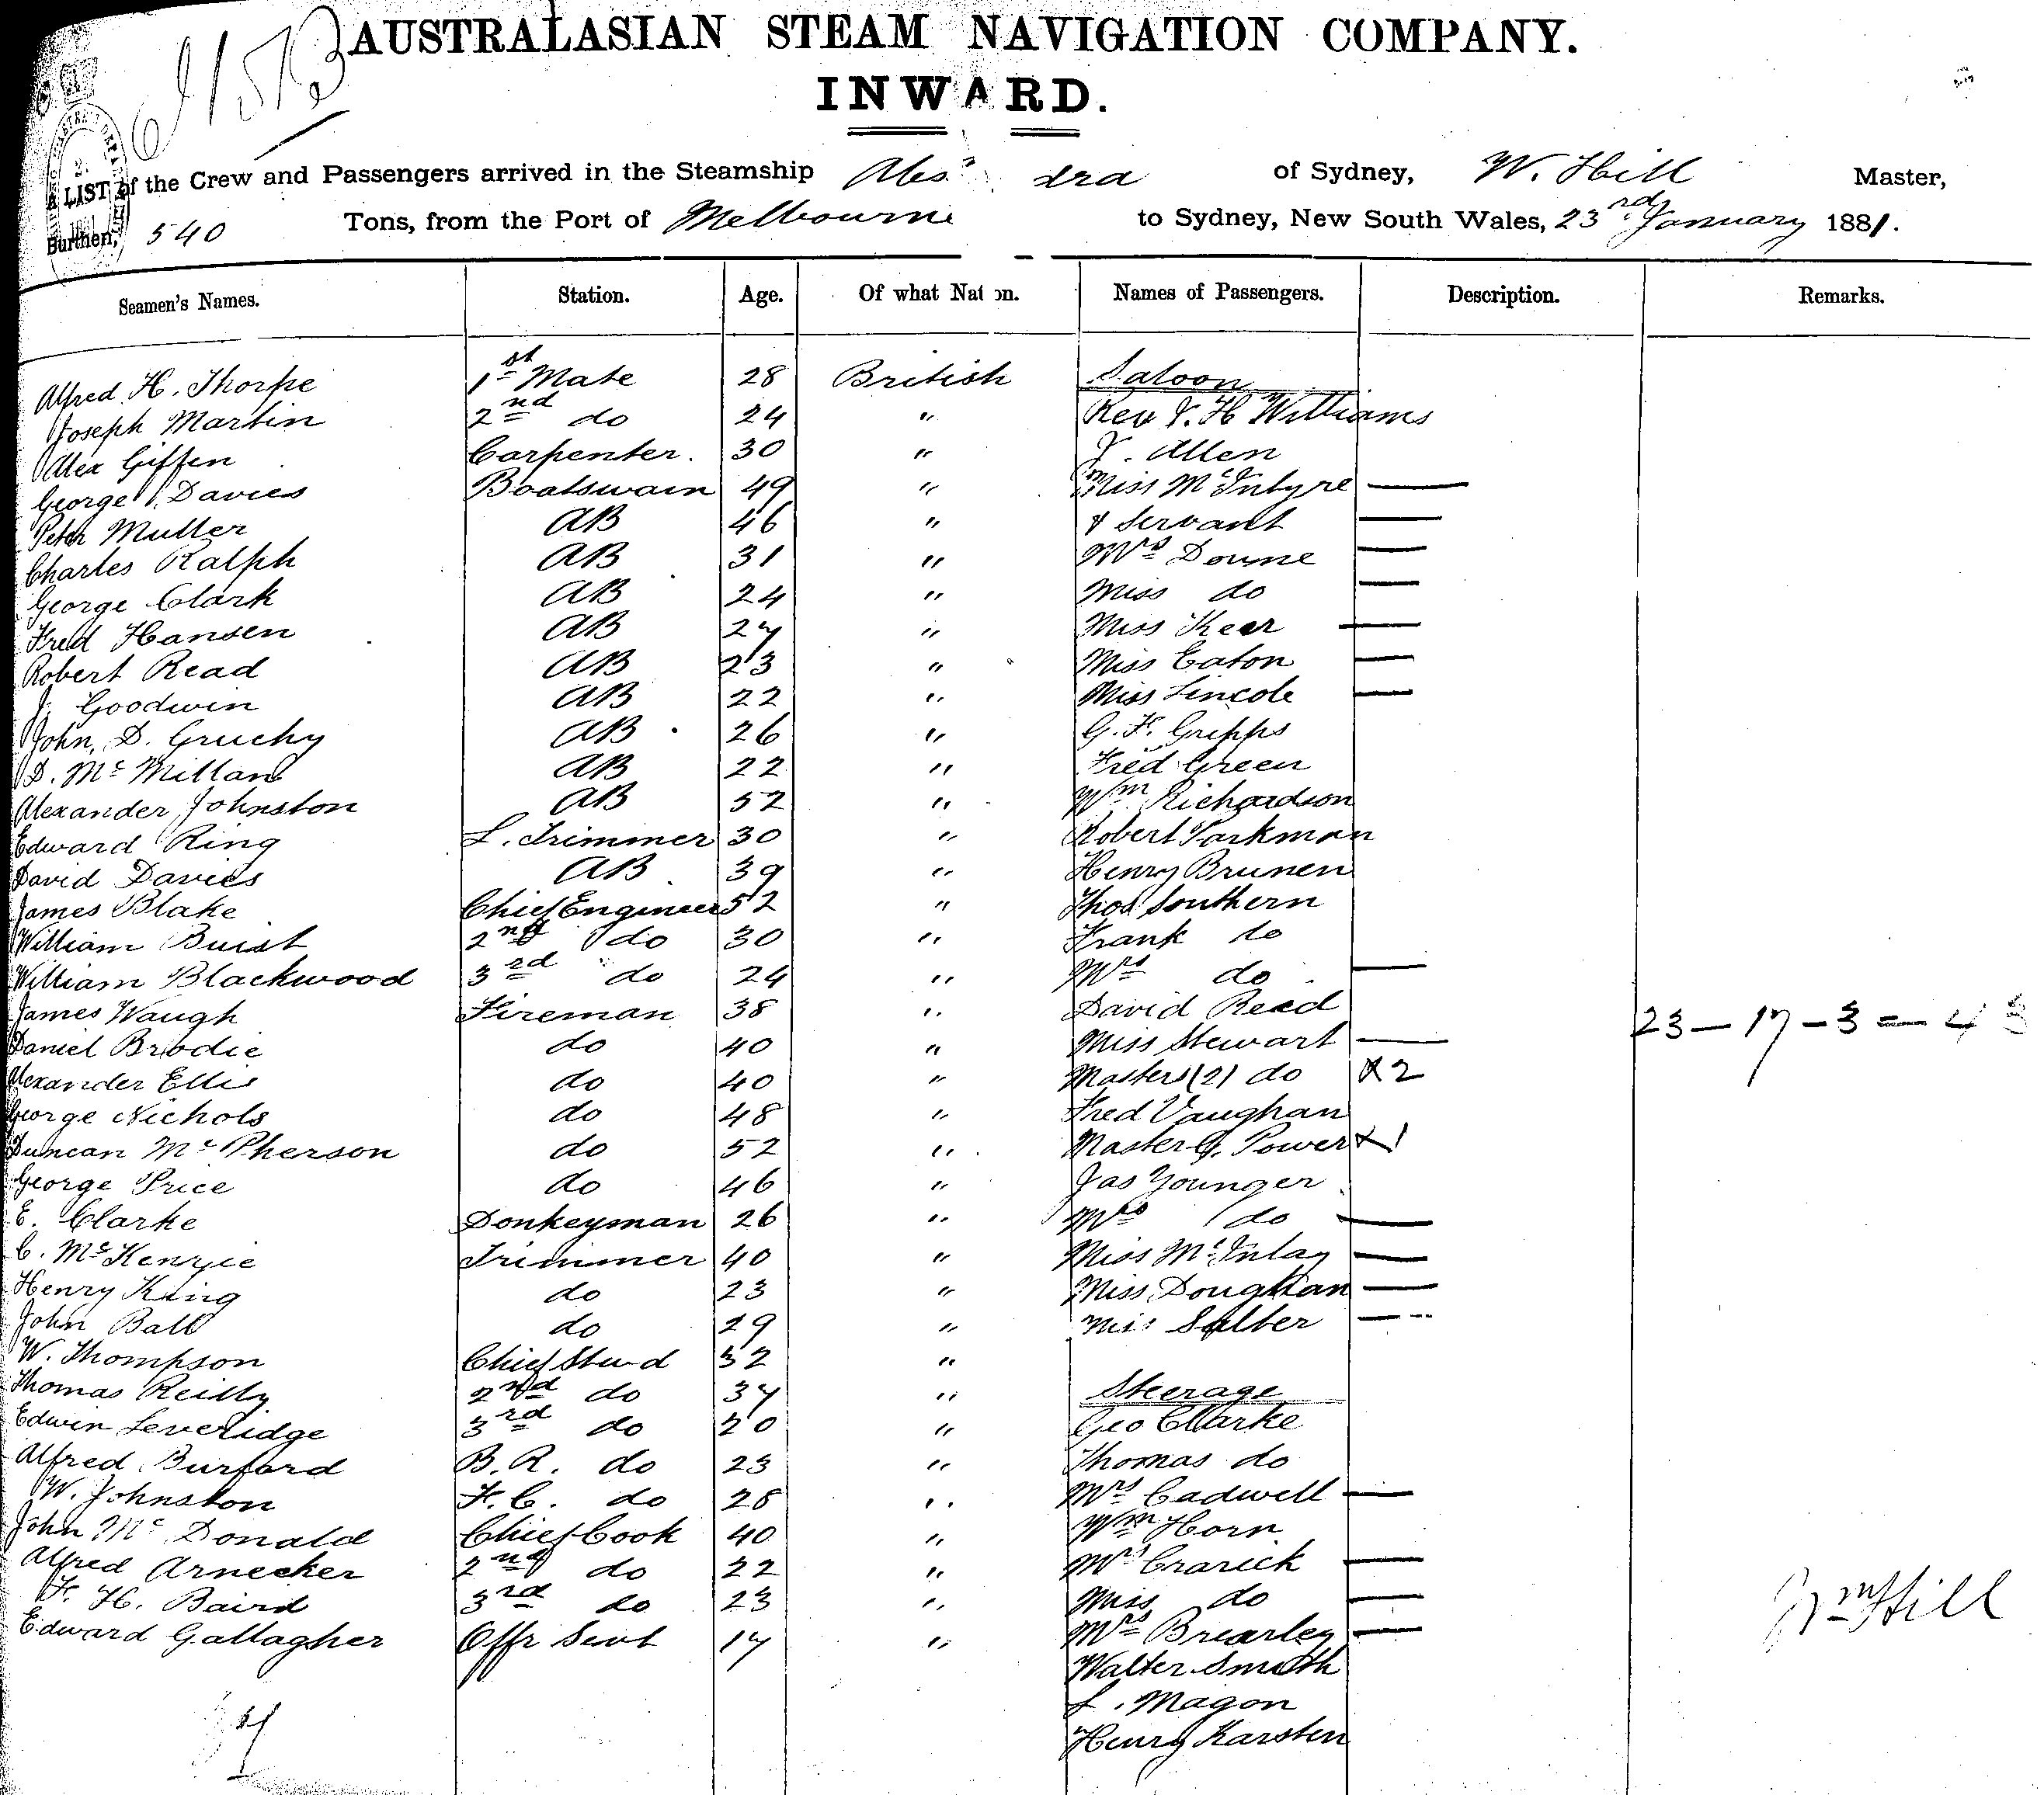 AUSTRALASIAN STEAM NAVIGATION COMPANY.
INWARD.
A LIST of the Crew and Passengers arrived in the Steamship dra of Sydney, W. Hill Master,
Burthen, 540 Tons, from the Port of Melbourne to Sydney, New South Wales, 23rd January 1881.
Seamen's Names. Station. Age. Of what Nat on. Names of Passengers. Description. Remarks.
Alfred H. Thorpe 1st Mate 28 British Saloon
Joseph Martin 2nd do 24 " Rev H Williams
Alex Giffen Carpenter. 30 " Allen
George Davies Boatswain 49 " Miss McIntyre —
Peter Muller AB 46 " & Servant —
Charles Ralph AB 31 " Mrs Doune —
George Clark AB 24 " Miss do —
Fred Hansen AB 27 " Miss Keer —
Robert Read AB 23 " Miss Eaton —
J. Goodwin AB 22 " Miss Lincole —
John D. Gruchy AB 26 " G. F. Gripps
D. Mc Millan AB 22 " Fred Green
Alexander Johnston AB 52 " Wm Richardson
Edward Ring L. Trimmer 30 " Robert Parkman
David Davies AB 39 " Henry Brunen
James Blake Chief Engineer 52 " Thos Southern
William Buist 2nd do 30 " Frank do
William Blackwood 3rd do 24 " Mrs do —
James Waugh Fireman 38 " David Reed
Daniel Brodie do 40 " Miss Stewart — 23 — 17 — 3 = 43
Alexander Ellis do 40 " Masters (2) do X 2
George Nichols do 48 " Fred Vaughan
Duncan Mc Pherson do 52 " Master G. Power X 1
George Price do 46 " Jas Younger
E. Clarke Donkeyman 26 " Mrs do —
C. McKenzie Trimmer 40 " Miss McInlay —
Henry King do 23 " Miss Doughan —
John Ball do 29 " Salber —
W. Thompson Chief Stwd 32 "
Thomas Reilly 2nd do 37 " Steerage
Edwin Leveridge 3rd do 20 " Geo Clarke
Alfred Burford B. R. do 23 " Thomas do
W. Johnston F. C. do 28 " Mrs Cadwell —
John Mc Donald Chief Cook 40 " Wm Horn
Alfred Arnecker 2nd do 22 " Mrs Crarick —
F. H. Baird 3rd do 23 " Miss do —
Edward Gallagher Offr Sevt 17 " Mrs Brearley —
Walter Smith
L. Magon
Henry Karsten
Wm Hill